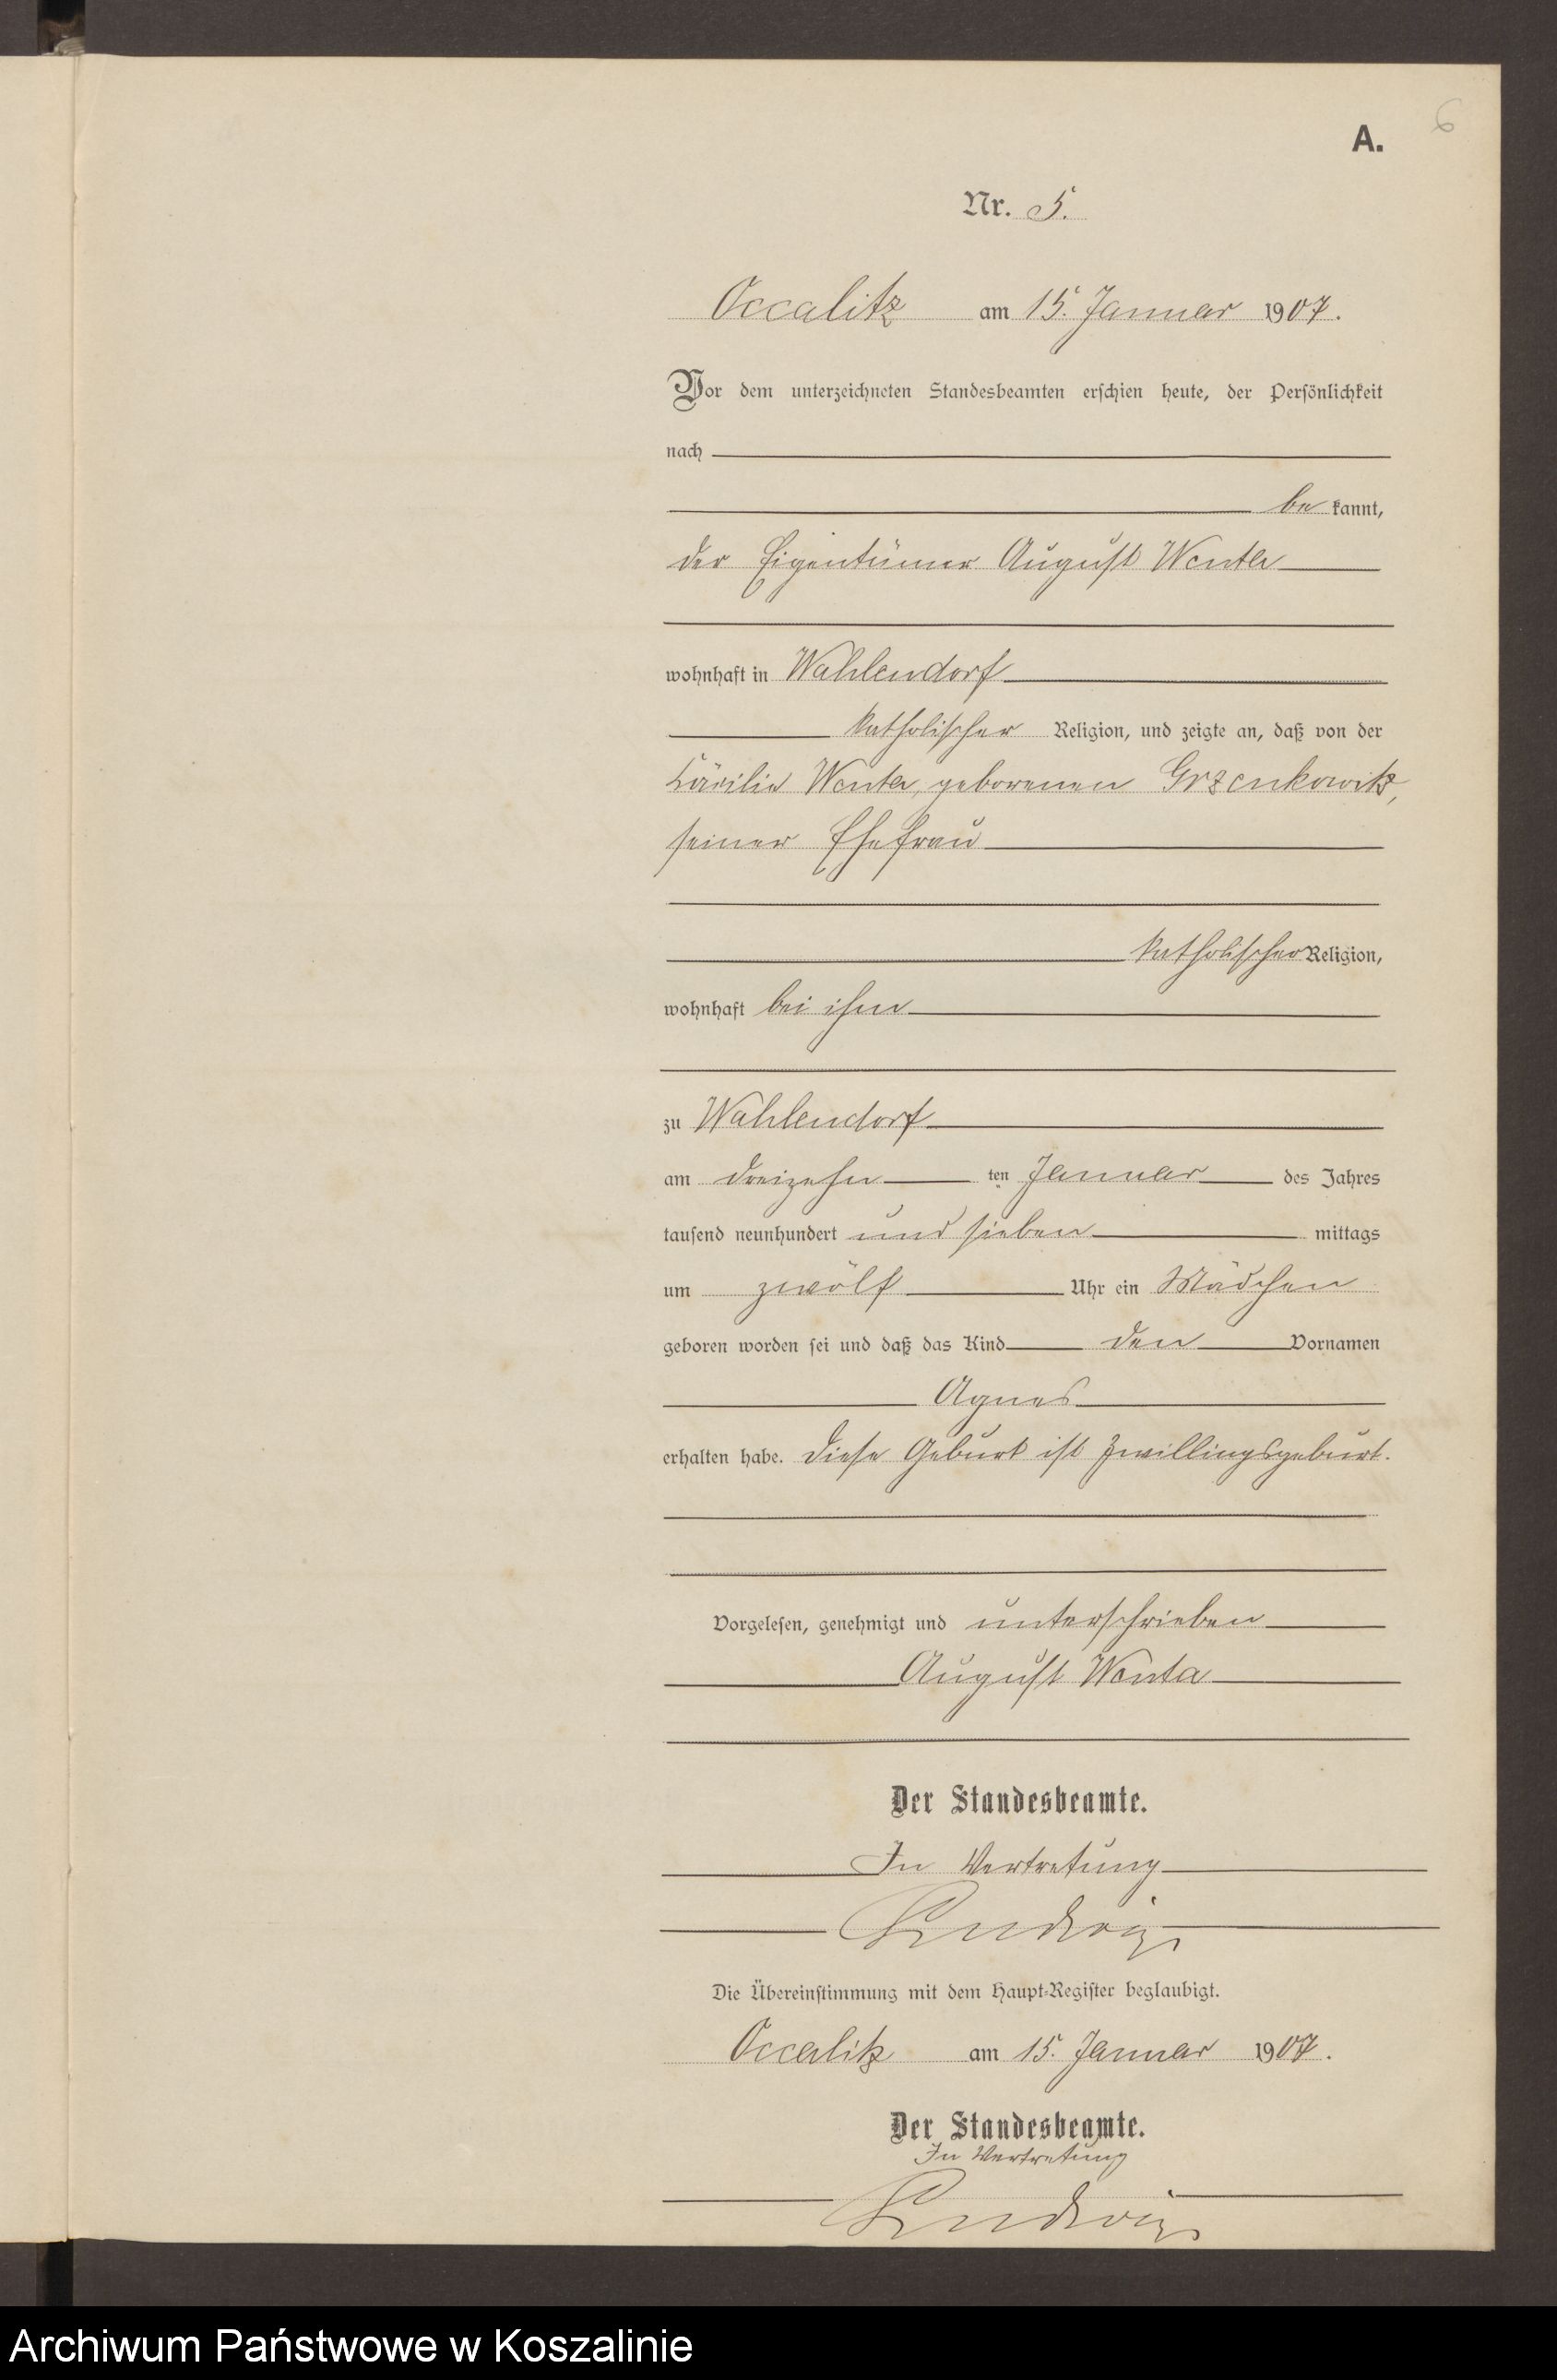 6
A.
Nr. 5.
Occalitz am 15. Januar 1907.
Vor dem unterzeichneten Standesbeamten erschien heute, der Persönlichkeit
nach
be kannt,
der Eigentümer August Wenta
wohnhaft in Wahlendorf
katholischer Religion, und zeigte an, daß von der
Cäcilia Wenta, geborenen Grzenkowitz,
seiner Ehefrau
katholischer Religion,
wohnhaft bei ihm
zu Wahlendorf
am dreizehn ten Januar des Jahres
tausend neunhundert und sieben mittags
um zwölf Uhr ein Mädchen
geboren worden sei und daß das Kind den Vornamen
Agnes
erhalten habe. Diese Geburt ist Zwillingsgeburt.
Vorgelesen, genehmigt und unterschrieben
August Wenta
Der Standesbeamte.
In Vertretung
Ludwig
Die Übereinstimmung mit dem Haupt-Register beglaubigt.
Occalitz am 15. Januar 1907.
Der Standesbeamte.
In Vertretung
Ludwig
Archiwum Państwowe w Koszalinie